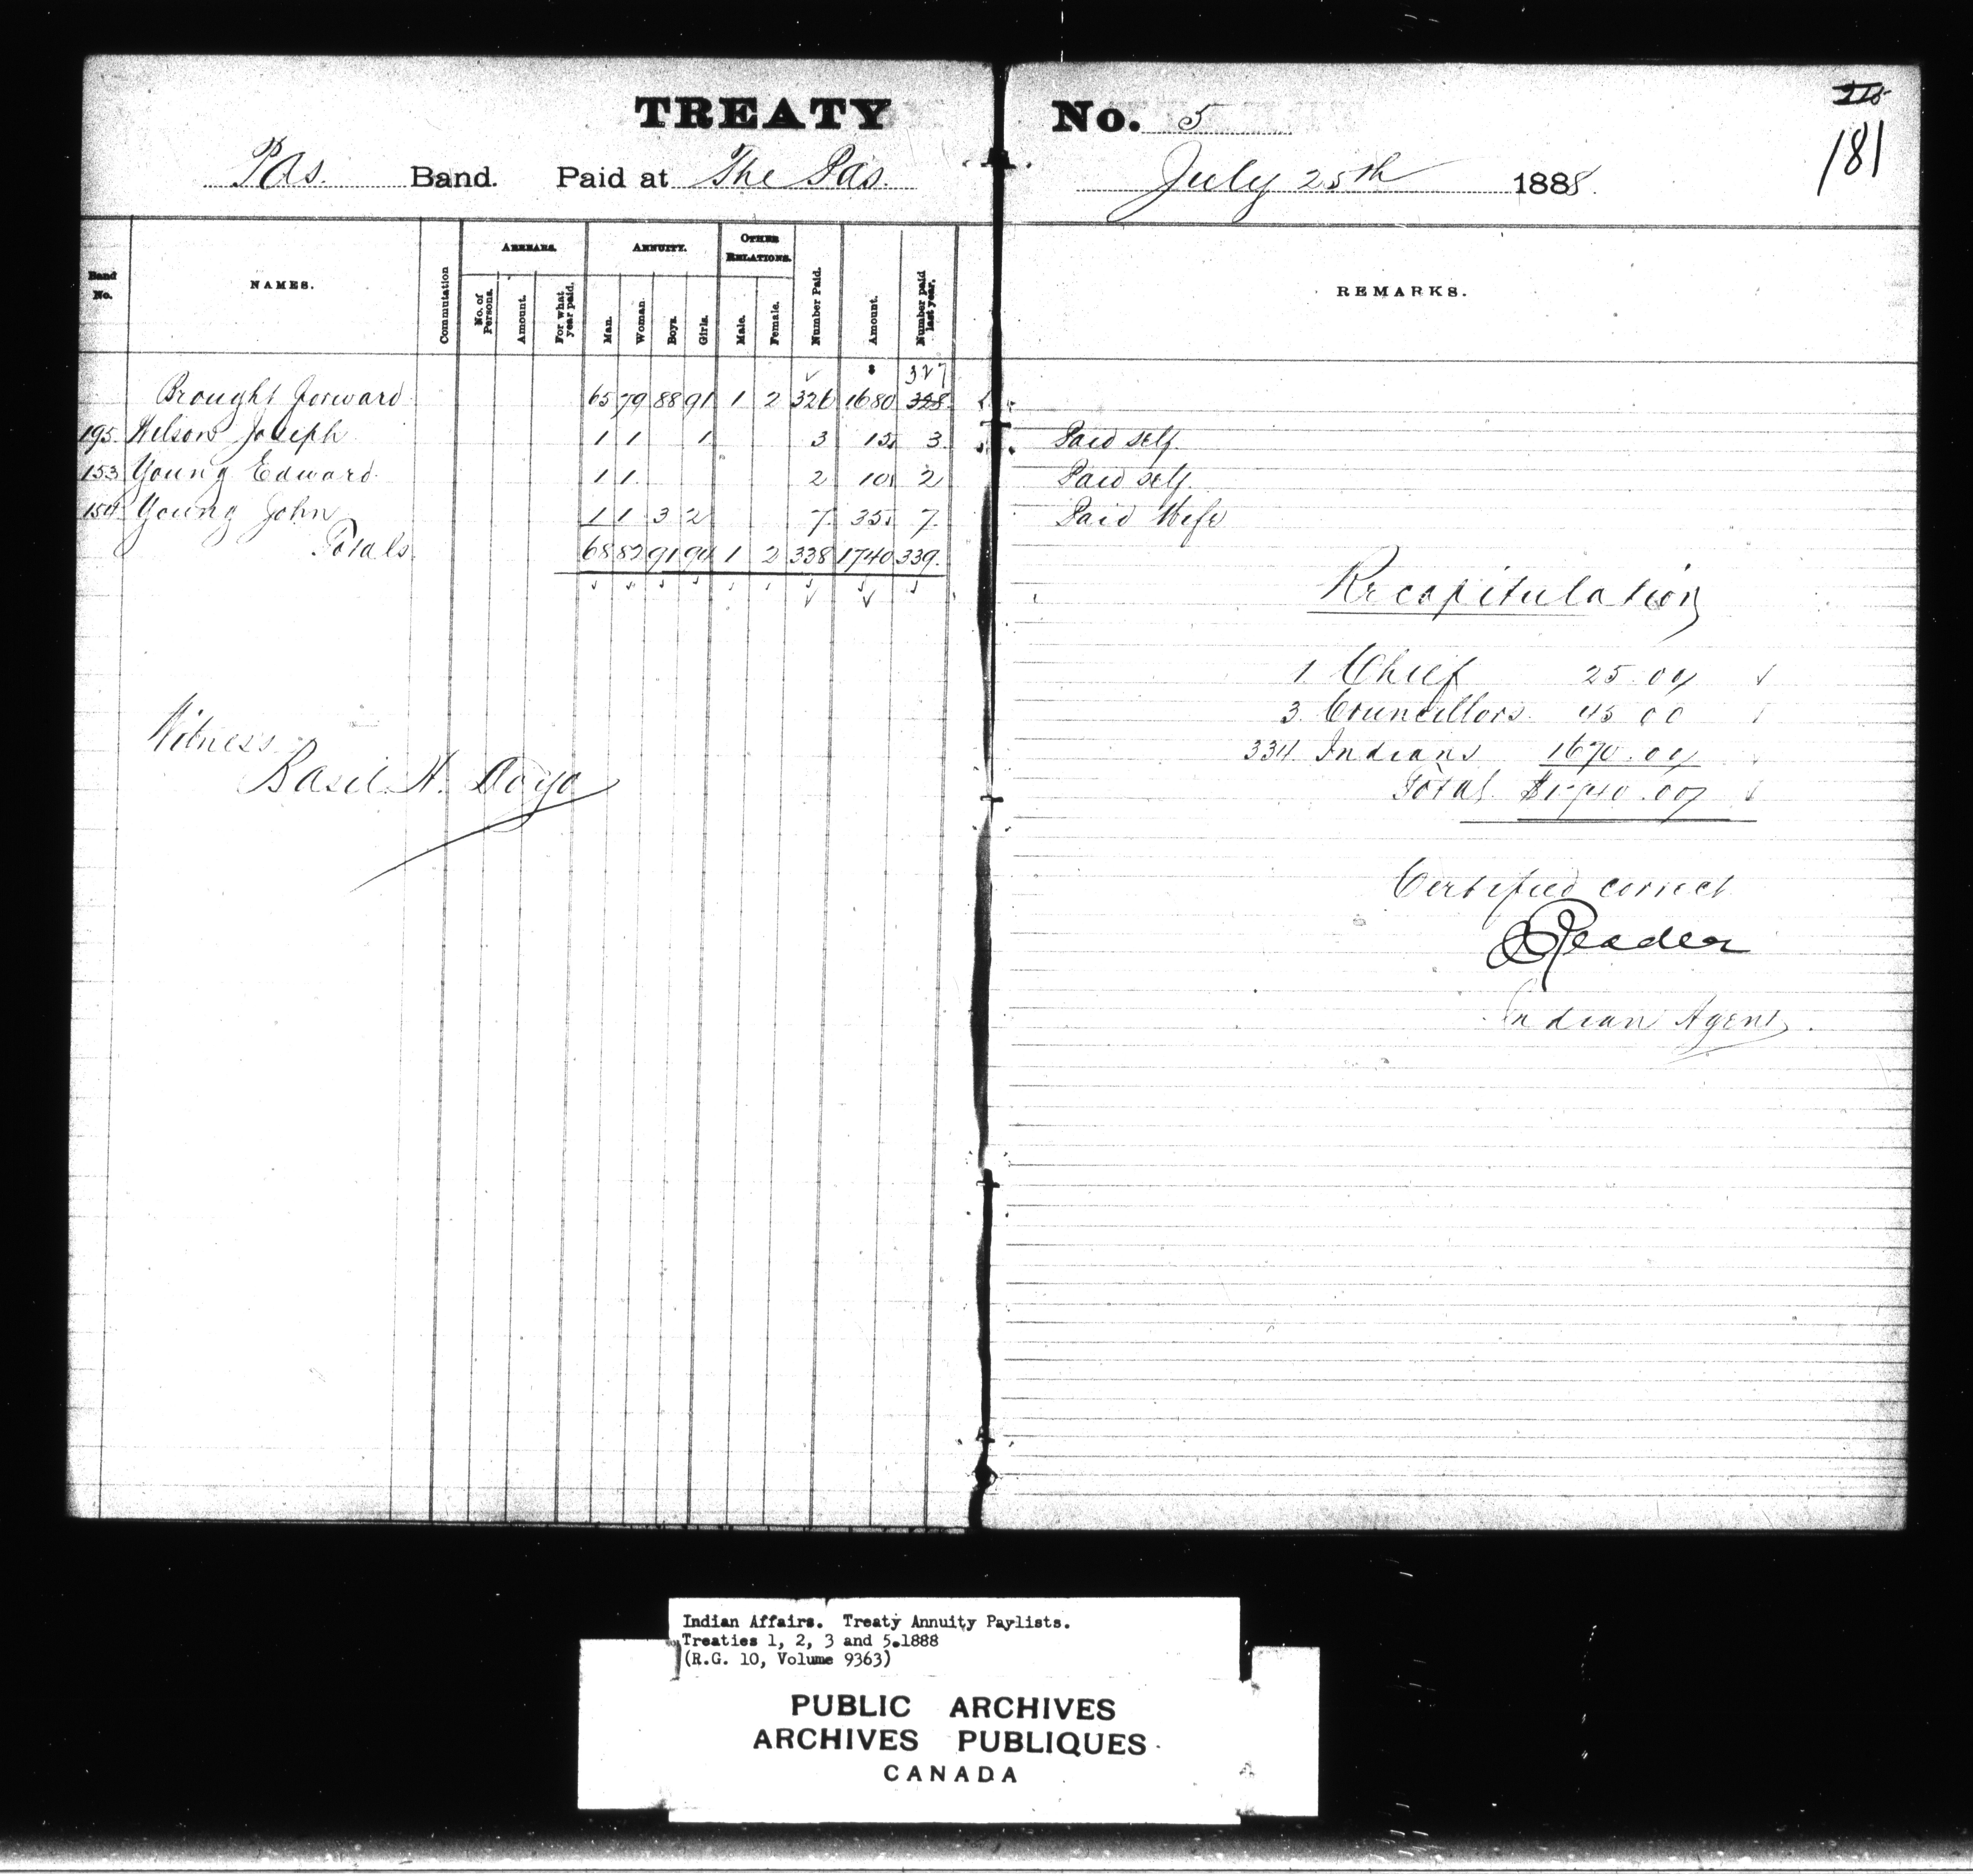 TREATY No. 5
215
181
Pas. Band. Paid at The Pas. July 25th 1888.
Band No. NAMES. Commutation ARREARS. No. of Persons. Amount. For what year paid. ANNUITY. Man. Woman. Boys. Girls. OTHER RELATIONS. Male. Female. Number Paid. Amount. Number paid last year. REMARKS.
$ 327
Brought forward 65 79 88 91 1 2 326 1680 328
195 Wilson Joseph 1 1 1 3 15 3 Paid self.
153 Young Edward 1 1 2 10 2 Paid self.
154 Young John 1 1 3 2 7 35 7 Paid Wife
Totals 68 82 91 94 1 2 338 1740 339.
Recapitulation
1 Chief 25.00
3 Councillors 45 00
334 Indians 1670.00
Total $1740.00
Witness
Basil H.
Certified correct
Reader
Indian Agent.
Indian Affairs. Treaty Annuity Paylists.
Treaties 1, 2, 3 and 5.1888
(R.G. 10, Volume 9363)
PUBLIC ARCHIVES
ARCHIVES PUBLIQUES
CANADA